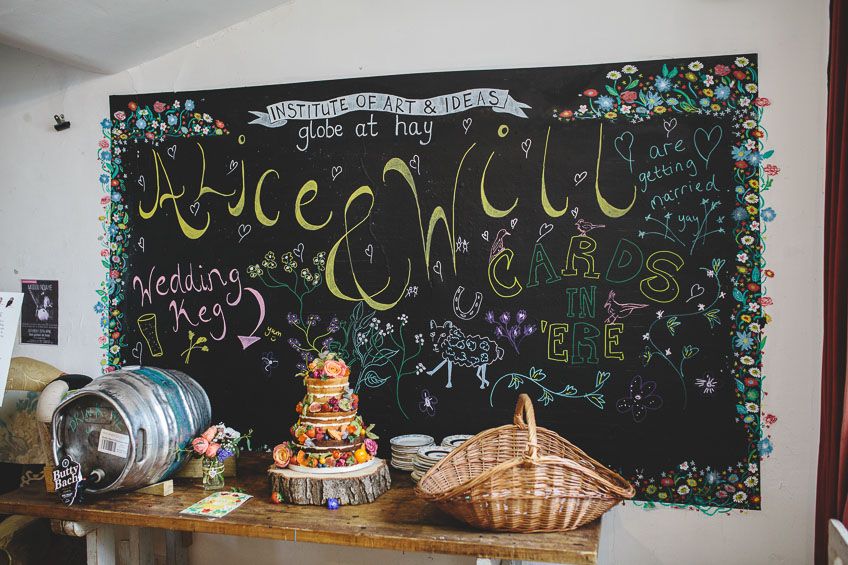 INSTITUTE OF ART & IDEAS
globe at hay
Alice & Will
are
getting
married
yay
Wedding
Keg
yum
CARDS
IN
'ERE
Butty
Bach